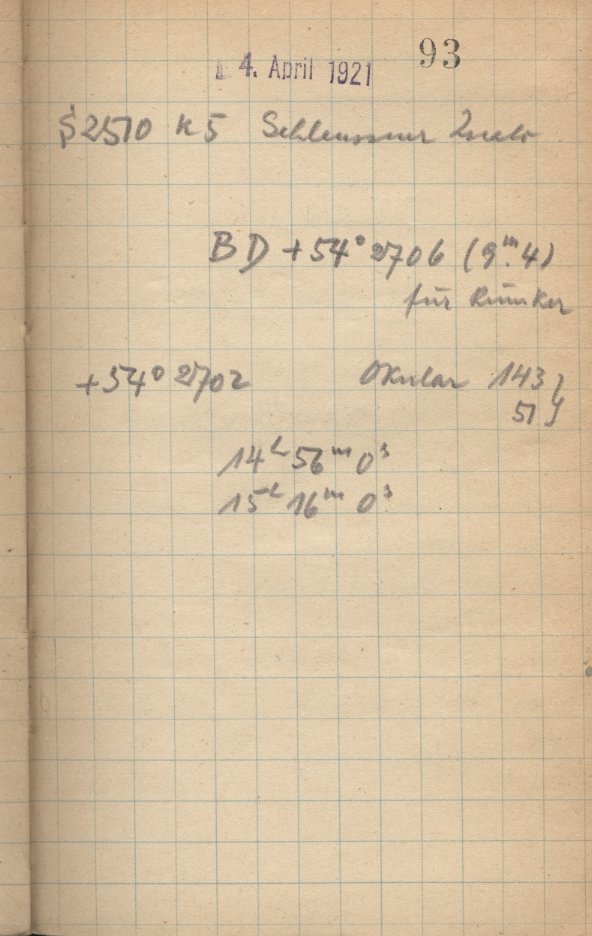 93
4. April 1921
S 2570 K 5 Schleussner
BD +54° 2706 (9.ᵐ4)
für Rümker
+54° 2702 Okular 143 }
51 }
14ʰ 56ᵐ 0ˢ
15ʰ 16ᵐ 0ˢ